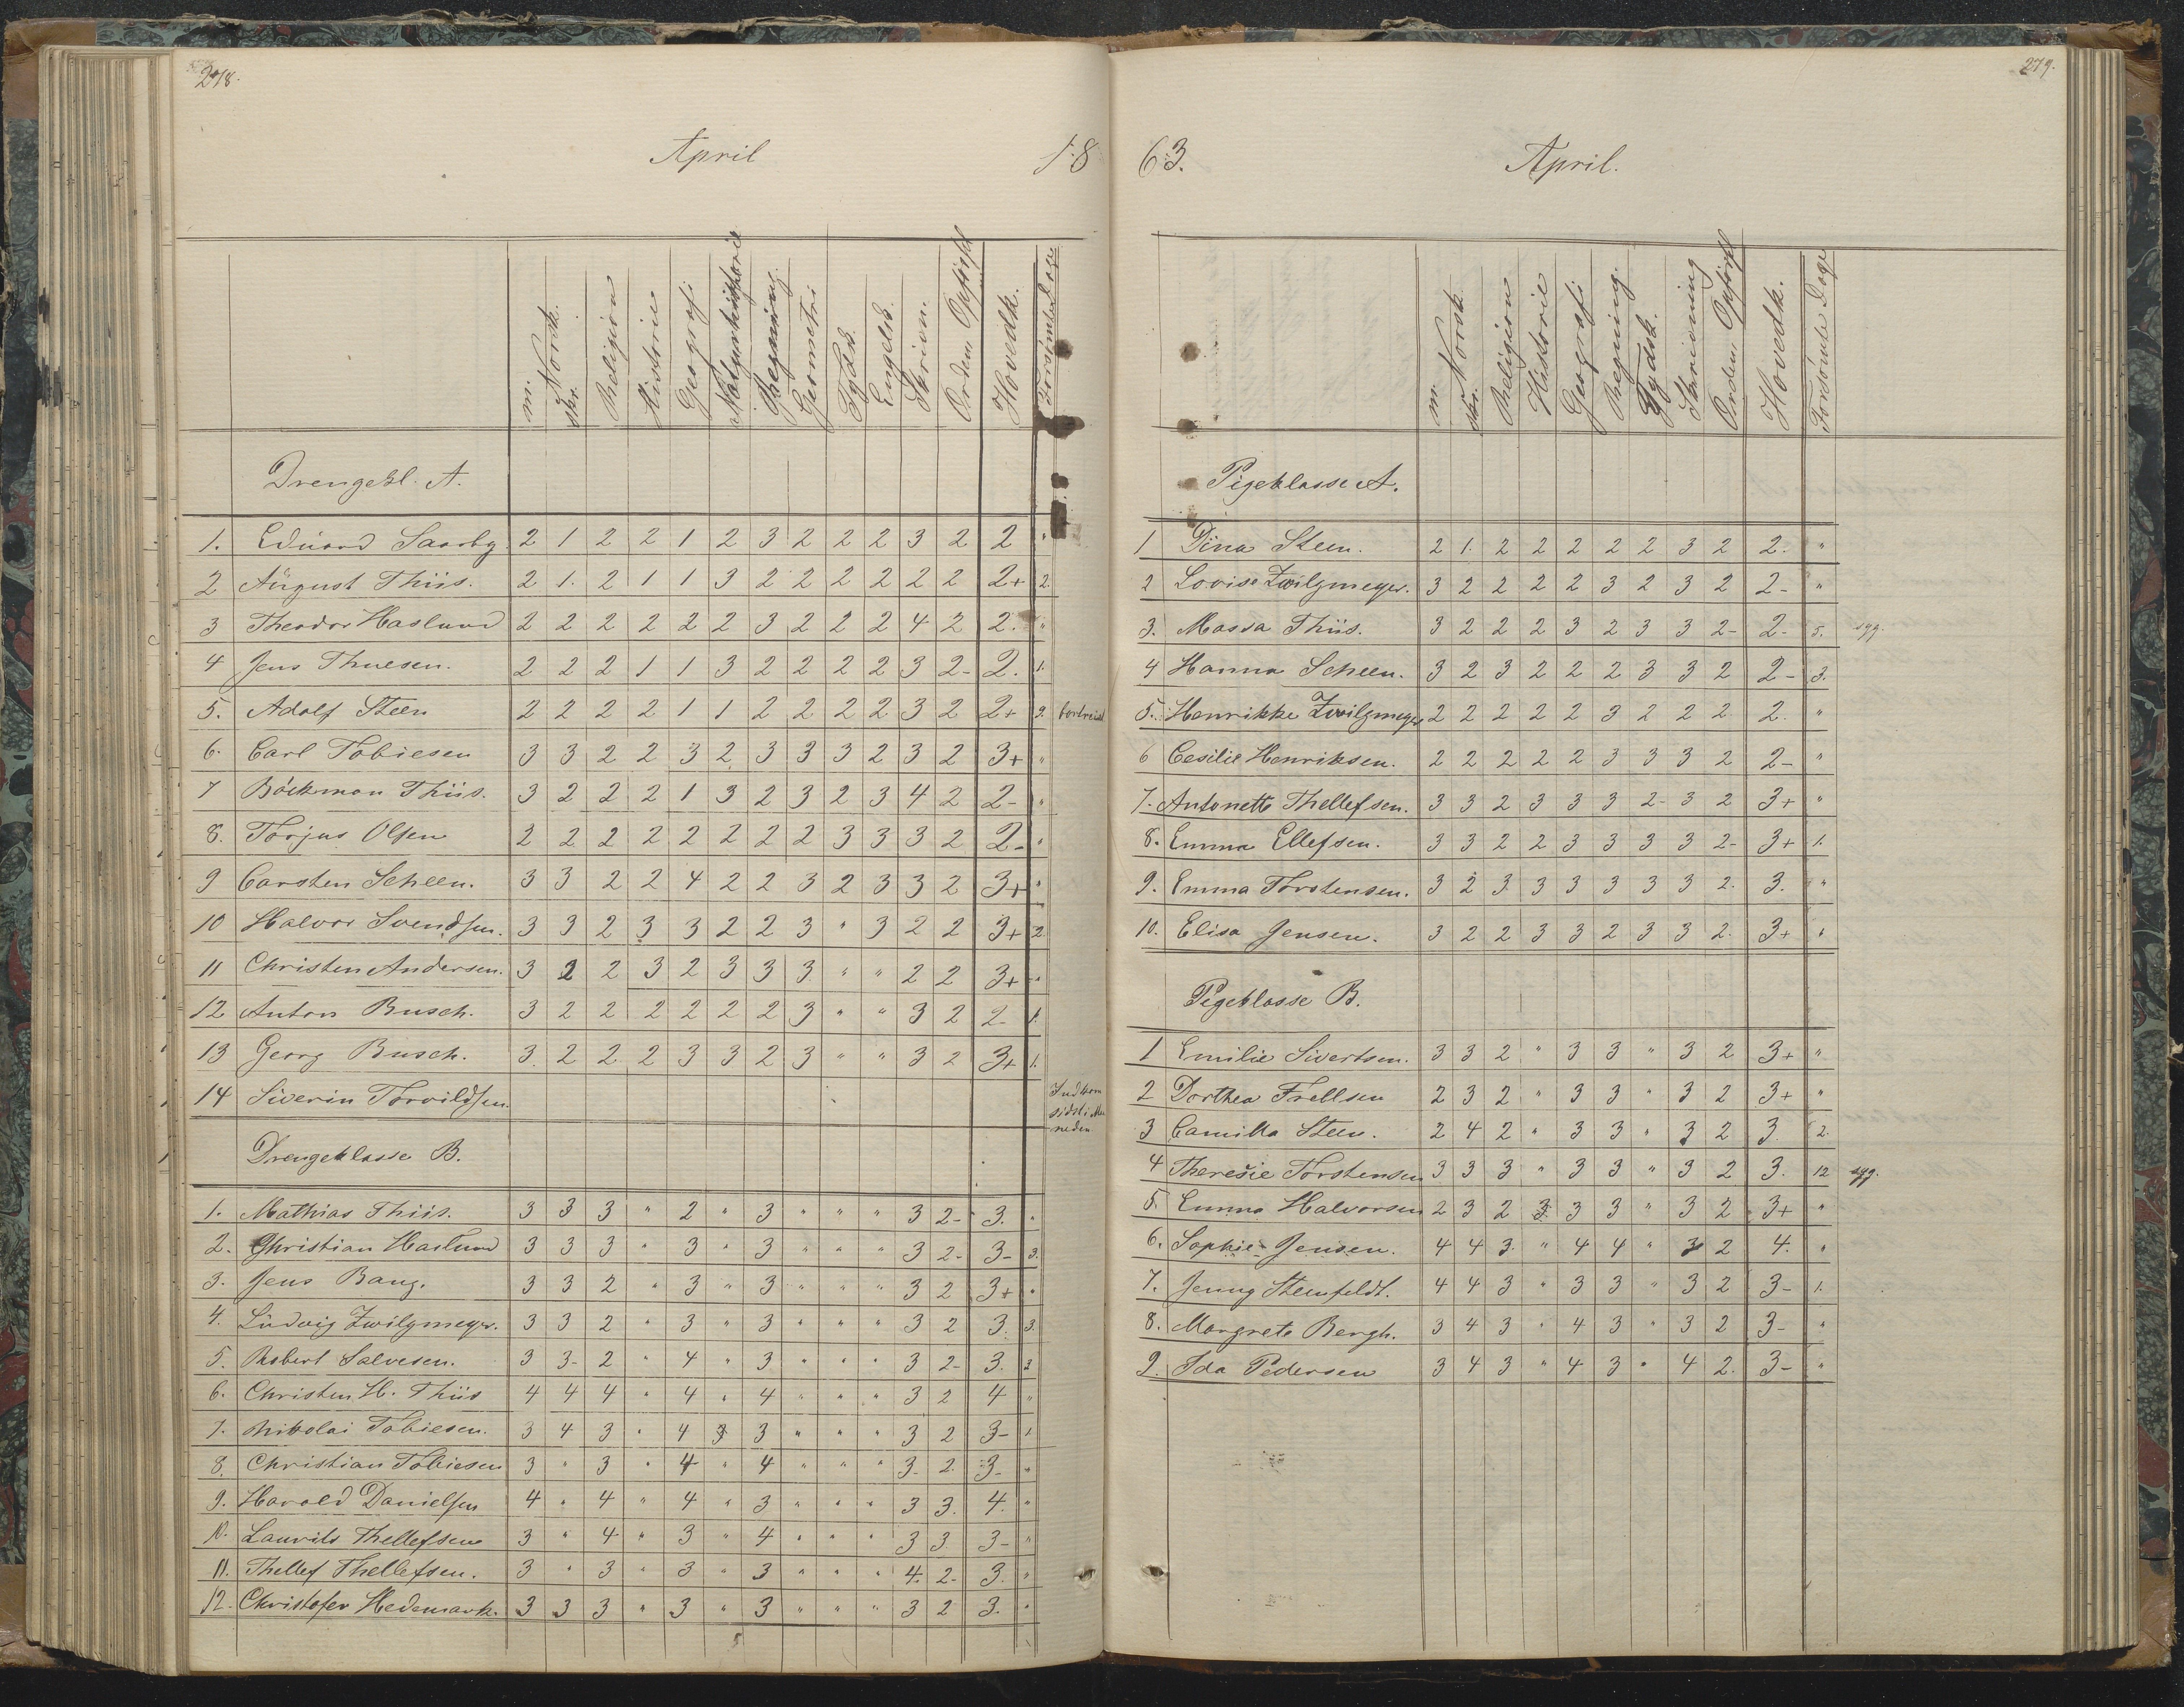 278.
April
18
m. Norsk. skr. Religion Historie Geografi Naturhistorie Regning. Geometri Tydsk. Engelsk. Skrivn. Orden, Opførsel Hovedk. Forsømte Dage
Drengekl. A.
1. Eduard Saarby 2 1 2 2 1 2 3 2 2 2 3 2 2 "
2 August Thiis. 2 1. 2 1 1 3 2 2 2 2 2 2 2+ 2.
3 Theodor Haslund 2 2 2 2 2 2 3 2 2 2 4 2 2. "
4 Jens Thuesen. 2 2 2 1 1 3 2 2 2 2 3 2- 2. 1.
5. Adolf Steen 2 2 2 2 1 1 2 2 2 2 3 2 2+ 9. bortreist
6. Carl Tobiesen 3 3 2 2 3 2 3 3 3 2 3 2 3+ "
7 Böckman Thiis. 3 2 2 2 1 3 2 3 2 3 4 2 2- "
8. Torjus Olsen 2 2 2 2 2 2 2 2 3 3 3 2 2- "
9 Carsten Scheen. 3 3 2 2 4 2 2 3 2 3 3 2 3+ "
10 Halvor Svendsen. 3 3 2 3 3 2 2 3 " 3 2 2 3+ 2.
11 Christen Andersen. 3 2 2 3 2 3 3 3 " " 2 2 3+ "
12 Anton Busch. 3 2 2 2 2 2 2 3 " " 3 2 2- 1.
13 Georg Busch. 3. 2 2 2 3 3 2 3 " " 3 2 3+ 1.
14 Siverin Torvildsen. Indkom sidst i Maaneden
Drengeklasse B.
1. Mathias Thiis. 3 3 3 " 2 " 3 " " " 3 2- 3. "
2. Christian Haslund 3 3 3 " 3 " 3 " " " 3 2- 3- 3.
3. Jens Bang. 3 3 2 " 3 " 3 " " " 3 2 3+ "
4. Ludvig Zwilgmeyer. 3 3 2 " 3 " 3 " " " 3 2 3. 3.
5. Robert Salvesen. 3 3- 2 " 4 " 3 " " " 3 2- 3. 2
6. Christen H. Thiis 4 4 4 " 4 " 4 " " " 3 2 4 "
7. Nikolai Tobiesen. 3 4 3 " 4 3 3 " " " 3 2 3- 1
8. Christian Tobiesen 3 " 3 " 4 " 4 " " " 3- 2. 3- "
9. Harald Danielsen 4 " 4 " 4 " 3 " " " 3 3. 4. "
10. Laurits Thellefsen 3 " 4 " 3 " 4 " " " 3 3. 3- "
11. Thellef Thellefsen. 3 " 3 " 3 " 3 " " " 4. 2- 3. "
12. Christofer Hedemark. 3 3 3 " 3 " 3 " " " 3 2 3. "
279.
63.
April.
m. Norsk skr. Religion Historie Geografi Regning. Tydsk. Skrivning Orden, Opførsel Hovedk. Forsømte Dage
Pigeklasse A.
1 Dina Steen. 2 1. 2 2 2 2 2 3 2 2. "
2 Lovise Zwilgmeyer. 3 2 2 2 2 3 2 3 2 2- "
3. Massa Thiis. 3 2 2 2 3 2 3 3 2- 2- 5. syg.
4 Hanna Scheen. 3 2 3 2 2 2 3 3 2 2- 3.
5. Henrikke Zwilgmeyer 2 2 2 2 2 3 2 2 2 2. "
6 Cesilie Henriksen. 2 2 2 2 2 3 3 3 2 2- "
7. Antonette Thellefsen. 3 3 2 3 3 3 2- 3 2 3+ "
8. Emma Ellefsen. 3 3 2 2 3 3 3 3 2- 3+ 1.
9. Emma Torstensen. 3 2 3 3 3 3 3 3 2. 3. "
10. Elisa Jensen. 3 2 2 3 3 2 3 3 2. 3+ "
Pigeklasse B.
1 Emilie Sivertsen. 3 3 2 " 3 3 " 3 2 3+ "
2 Dorthea Frellsen 2 3 2 " 3 3 " 3 2 3+ "
3 Camilla Steen. 2 4 2 " 3 3 " 3 2 3. 2.
4 Theresie Torstensen 3 3 3 " 3 3 " 3 2 3. 12 syg.
5. Emma Halvorsen 2 3 2 3. 3 3 " 3 2 3+ "
6. Sophie Jensen. 4 4 3. " 4 4 " 3 2 4. "
7. Jenny Steenfeldt. 4 4 3 " 3 3 " 3 2 3- 1.
8. Margrete Bergh. 3 4 3 " 4 3 " 3 2 3- "
9. Ida Pedersen 3 4 3 " 4 3 " 4 2. 3- "